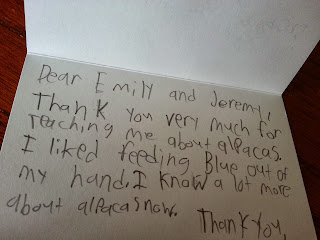 Dear Emily and Jeremy,
Thank you very much for
teaching me about alpacas.
I liked feeding Blue out of
my hand. I know a lot more
about alpacas now.
Thank you,